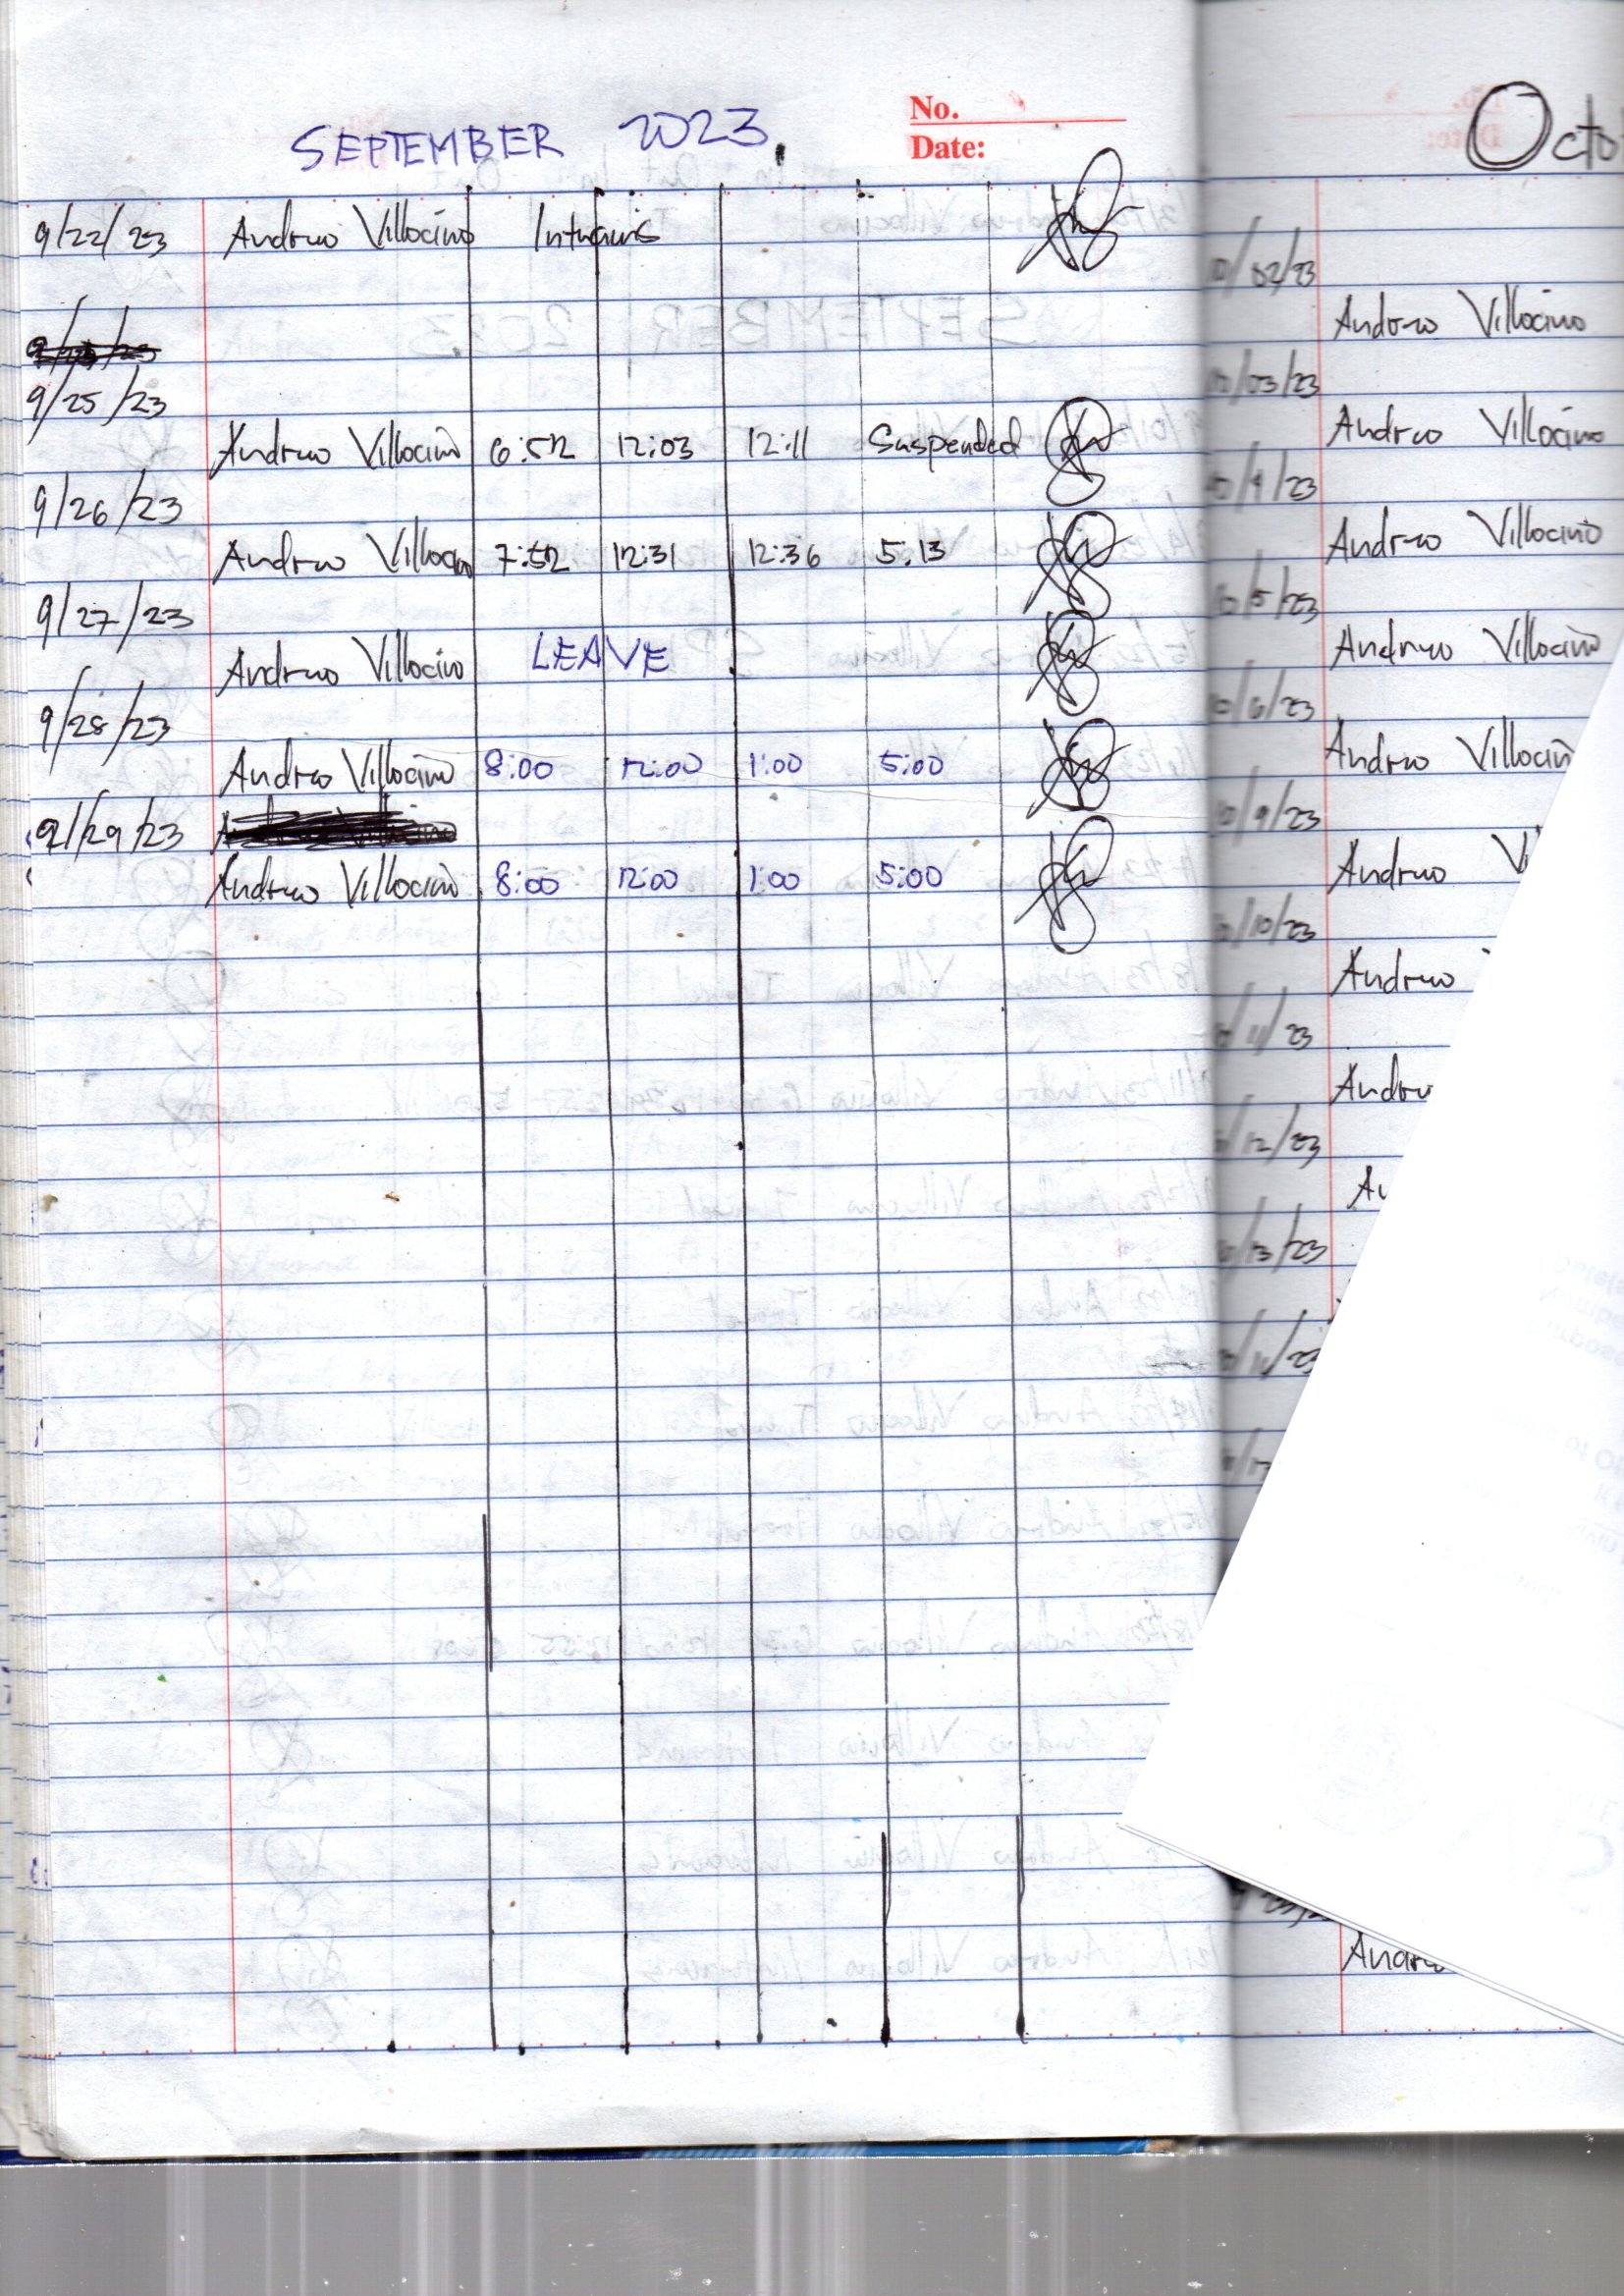 No.
Date:
SEPTEMBER 2023.
9/22/23 Andrew Villocino Intrams
9/25/23
Andrew Villocino 6:52 12:03 12:11 Suspended
9/26/23
Andrew Villocino 7:52 12:31 12:36 5.13
9/27/23
Andrew Villocino LEAVE
9/28/23
Andrew Villocino 8:00 12:00 1:00 5:00
9/29/23
Andrew Villocino 8:00 12:00 1:00 5:00
Octo
10/02/23
Andrew Villocino
10/03/23
Andrew Villocino
10/4/23
Andrew Villocino
10/5/23
Andrew Villocino
10/6/23
Andrew Villocin
10/9/23
Andrew Vi
10/10/23
Andrew
10/11/23
Andre
10/12/23
An
10/13/23
Andre